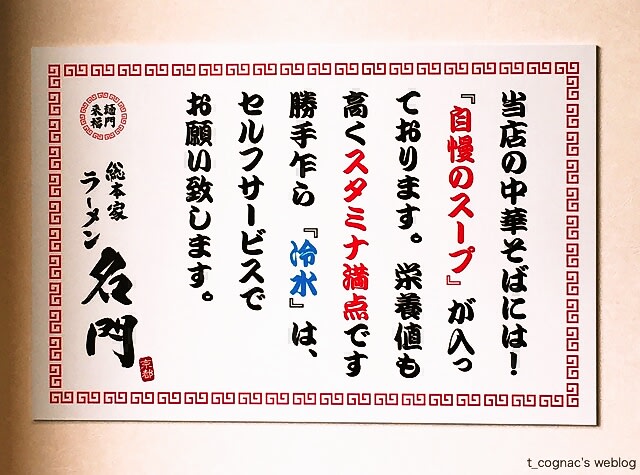 当店の中華そばには！
『自慢のスープ』が入っ
ております。栄養値も
高くスタミナ満点です
勝手乍ら『冷水』は、
セルフサービスで
お願い致します。
麺門
来福
総本家
ラーメン
名門
京都
t_cognac's weblog